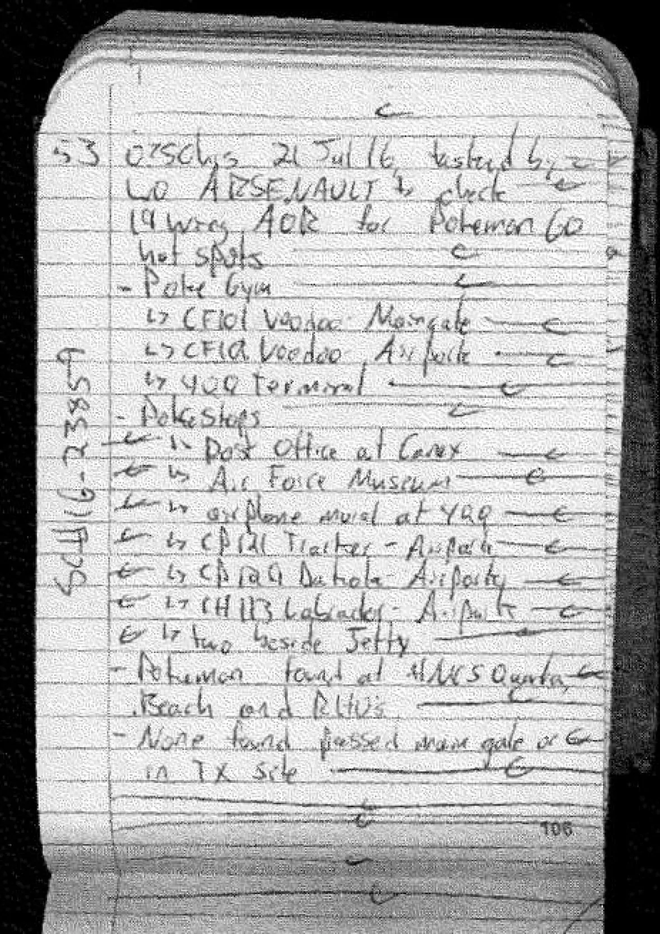 53 0750hrs 21 Jul 16, tasked by
WO ARSENAULT to check
19 Wing AOR for Pokemon GO
hot spots
- Poke Gym
↳ CF101 Voodoo Maingate
↳ CF101 Voodoo Airpark
↳ YQQ Terminal
- PokeStops
↳ Post Office at Canex
↳ Air Force Museum
↳ airplane mural at YQQ
↳ CP121 Tracker - Airpark
↳ Dakota Airpark
↳ CH113 Labrador - Airpark
↳ two beside Jetty
- Pokemon found at HMCS Quadra,
Beach and RHU's
- None found passed main gate or
in TX site
106
16-23859